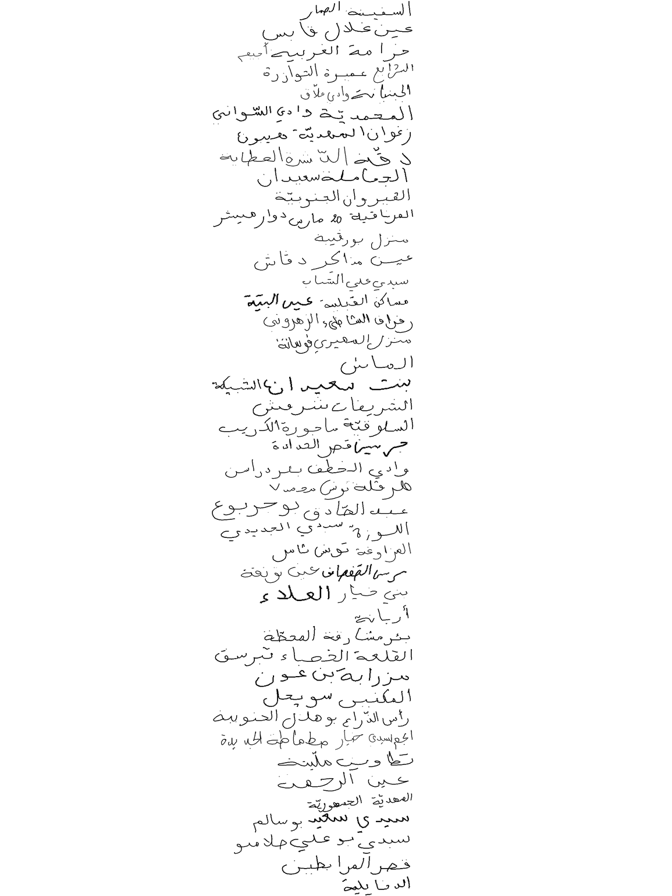 السفينة الصمار
عين غلال قابس
حزامة الغربية أميم
الشرايع عميرة التوازرة
الجبنيانة وادي ملاق
المحمدية وادي السواني
زغوان المهدية هيبون
دقة الدشرة العطاية
الجماملة سعيدان
القيروان الجنوبية
العراقية 20 مارس دوار هيشر
منزل بورقيبة
عين مذاكر دقاش
سيدي علي الشباب
مساكن القبلية عين البنية
رفراف الشاطئ الزهروني
منزل المهيري فوسانة
الماسلين
بنت سعيدان الشبيكة
الشريفات شرفش
السلوقية ماجورة الكريب
جرسين قصر الحدادة
وادي الخطف بئر دراسن
هرقلة تونس
عبد الصادق بوجربوع
اللوزة سيدي الحديدي
المراوقة تونس ثامر
سرس القفصان عين بوزيفة
بني خيار العلاء
أريانة
بئر مشارقة المحطة
القلعة الخصباء تبرسق
مزرابة بن عون
المكنين سويحل
رأس الذراع بوهلال الجنوبية
الجم سيدي خيار مطماطة الجديدة
تطاوين مليتة
عين الرحمة
المهدية الجمهورية
سيدي سعيد بوسالم
سيدي بو علي جلامو
قصر المرابطين
النفايلية